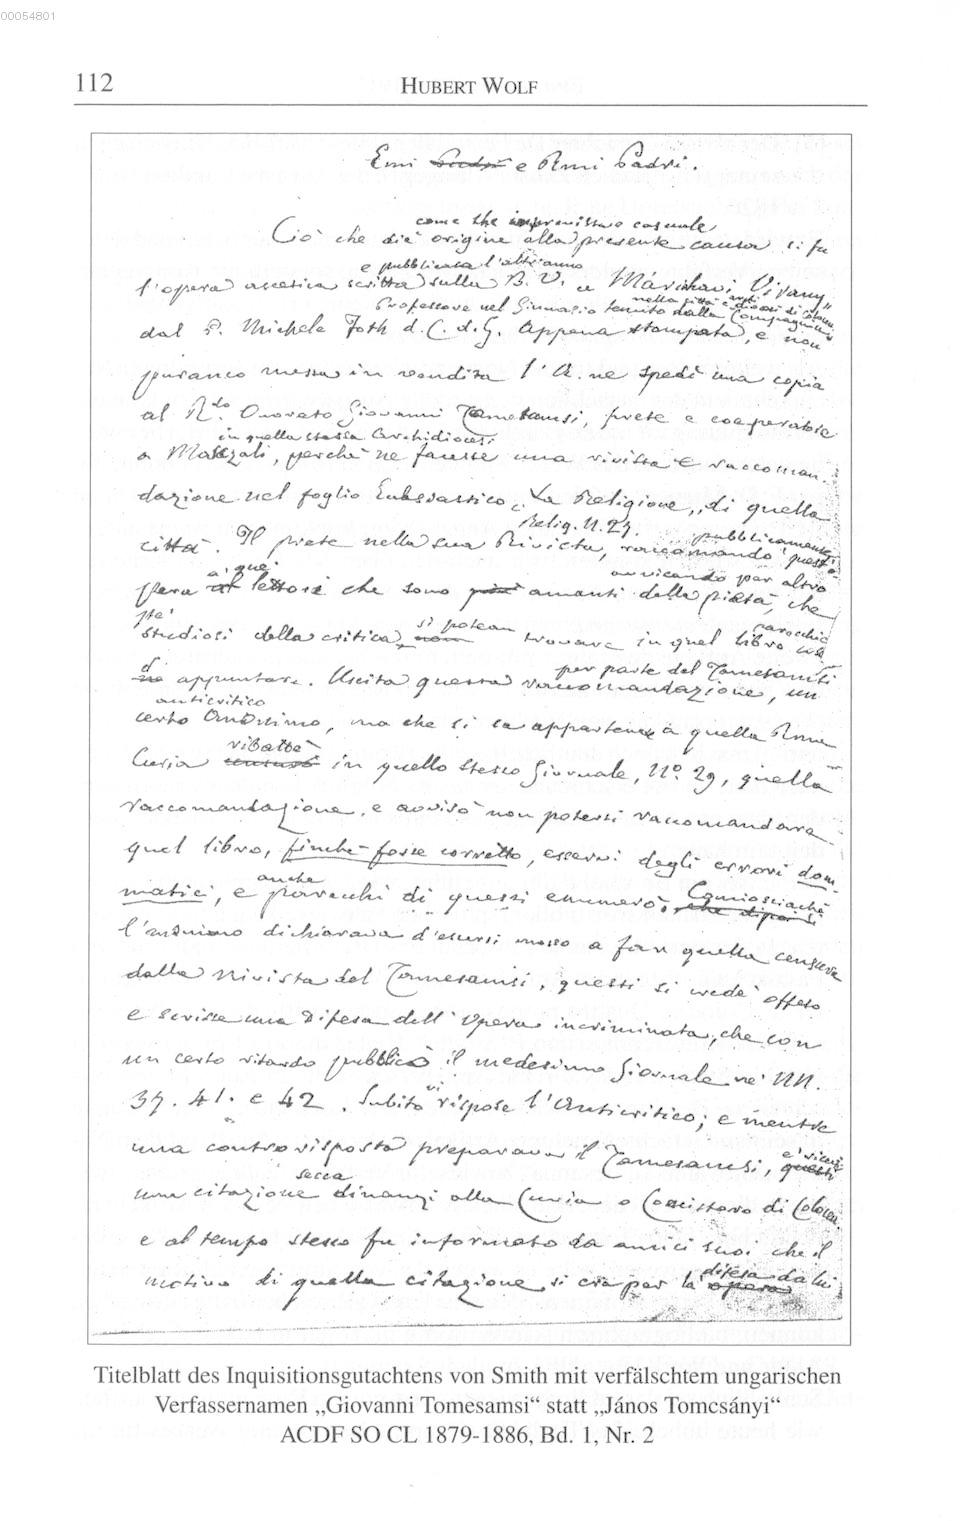 00054801
112
HUBERT WOLF
Emi Padri e Rmi Padri.
come che improvviso casuale
Ciò che diè origine alla presente causa si fu
e pubblicata l'altr'anno
l'opera ascetica scritta sulla B. V. a Máriahavi Virány"
Professore nel Ginnasio tenuto dalla Compagnia
nella città e diocesi di Coloc.
dal P. Michele Toth d. C. d. G. Appena stampata, e non
puranco messa in vendita l'A. ne spedì una copia
al R.do Onorato Giovanni Tomesamsi, prete e cooperatore
in quella stessa Archidiocesi
a perchè ne facesse una rivista e raccoman-
dazione nel foglio Eclesiastico „La Religione„ di quella
Relig. N. 27. pubblicamente
città. Il prete nella sua Rivista, raccomandò quest'o-
a' quei avvicando per altro
pera al lettori che sono amanti della pietà, che
si potean parecchie
studiosi della critica non trovare in quel libro cose
d per parte del Tomesamsi
appuntare. Uscita questa raccomandazione, un
anticritico
certo Anonimo, ma che si sa appartenere a quella Rma
ribattè
Curia in quello stesso Giornale, Nº. 29, quella
raccomandazione, e avvisò non potersi raccomandare
quel libro, finchè fosse corretto, esservi degli errori dom-
anche Conciosiachè
matici, e parecchi di questi enumerò. che dipoi si
l'anonimo dichiarava d'essersi mosso a far quella censura
dalla rivista del Tomesamsi, questi si vede offeso
e scrisse una difesa dell'opera incriminata, che con
un certo ritardo pubblicò il medesimo Giornale ne' NN.
37. 41. e 42. Subito vi rispose l'Anticritico; e mentre
una contro risposta preparava il Tomesamsi, questi
e' riceve
secca
una citazione dinanzi alla Curia o Concistoro di Coloc.
e al tempo stesso fu informato da amici suoi che il
difesa da lui
motivo di quella citazione si era per la opera
Titelblatt des Inquisitionsgutachtens von Smith mit verfälschtem ungarischen
Verfassernamen „Giovanni Tomesamsi“ statt „János Tomcsányi“
ACDF SO CL 1879-1886, Bd. 1, Nr. 2